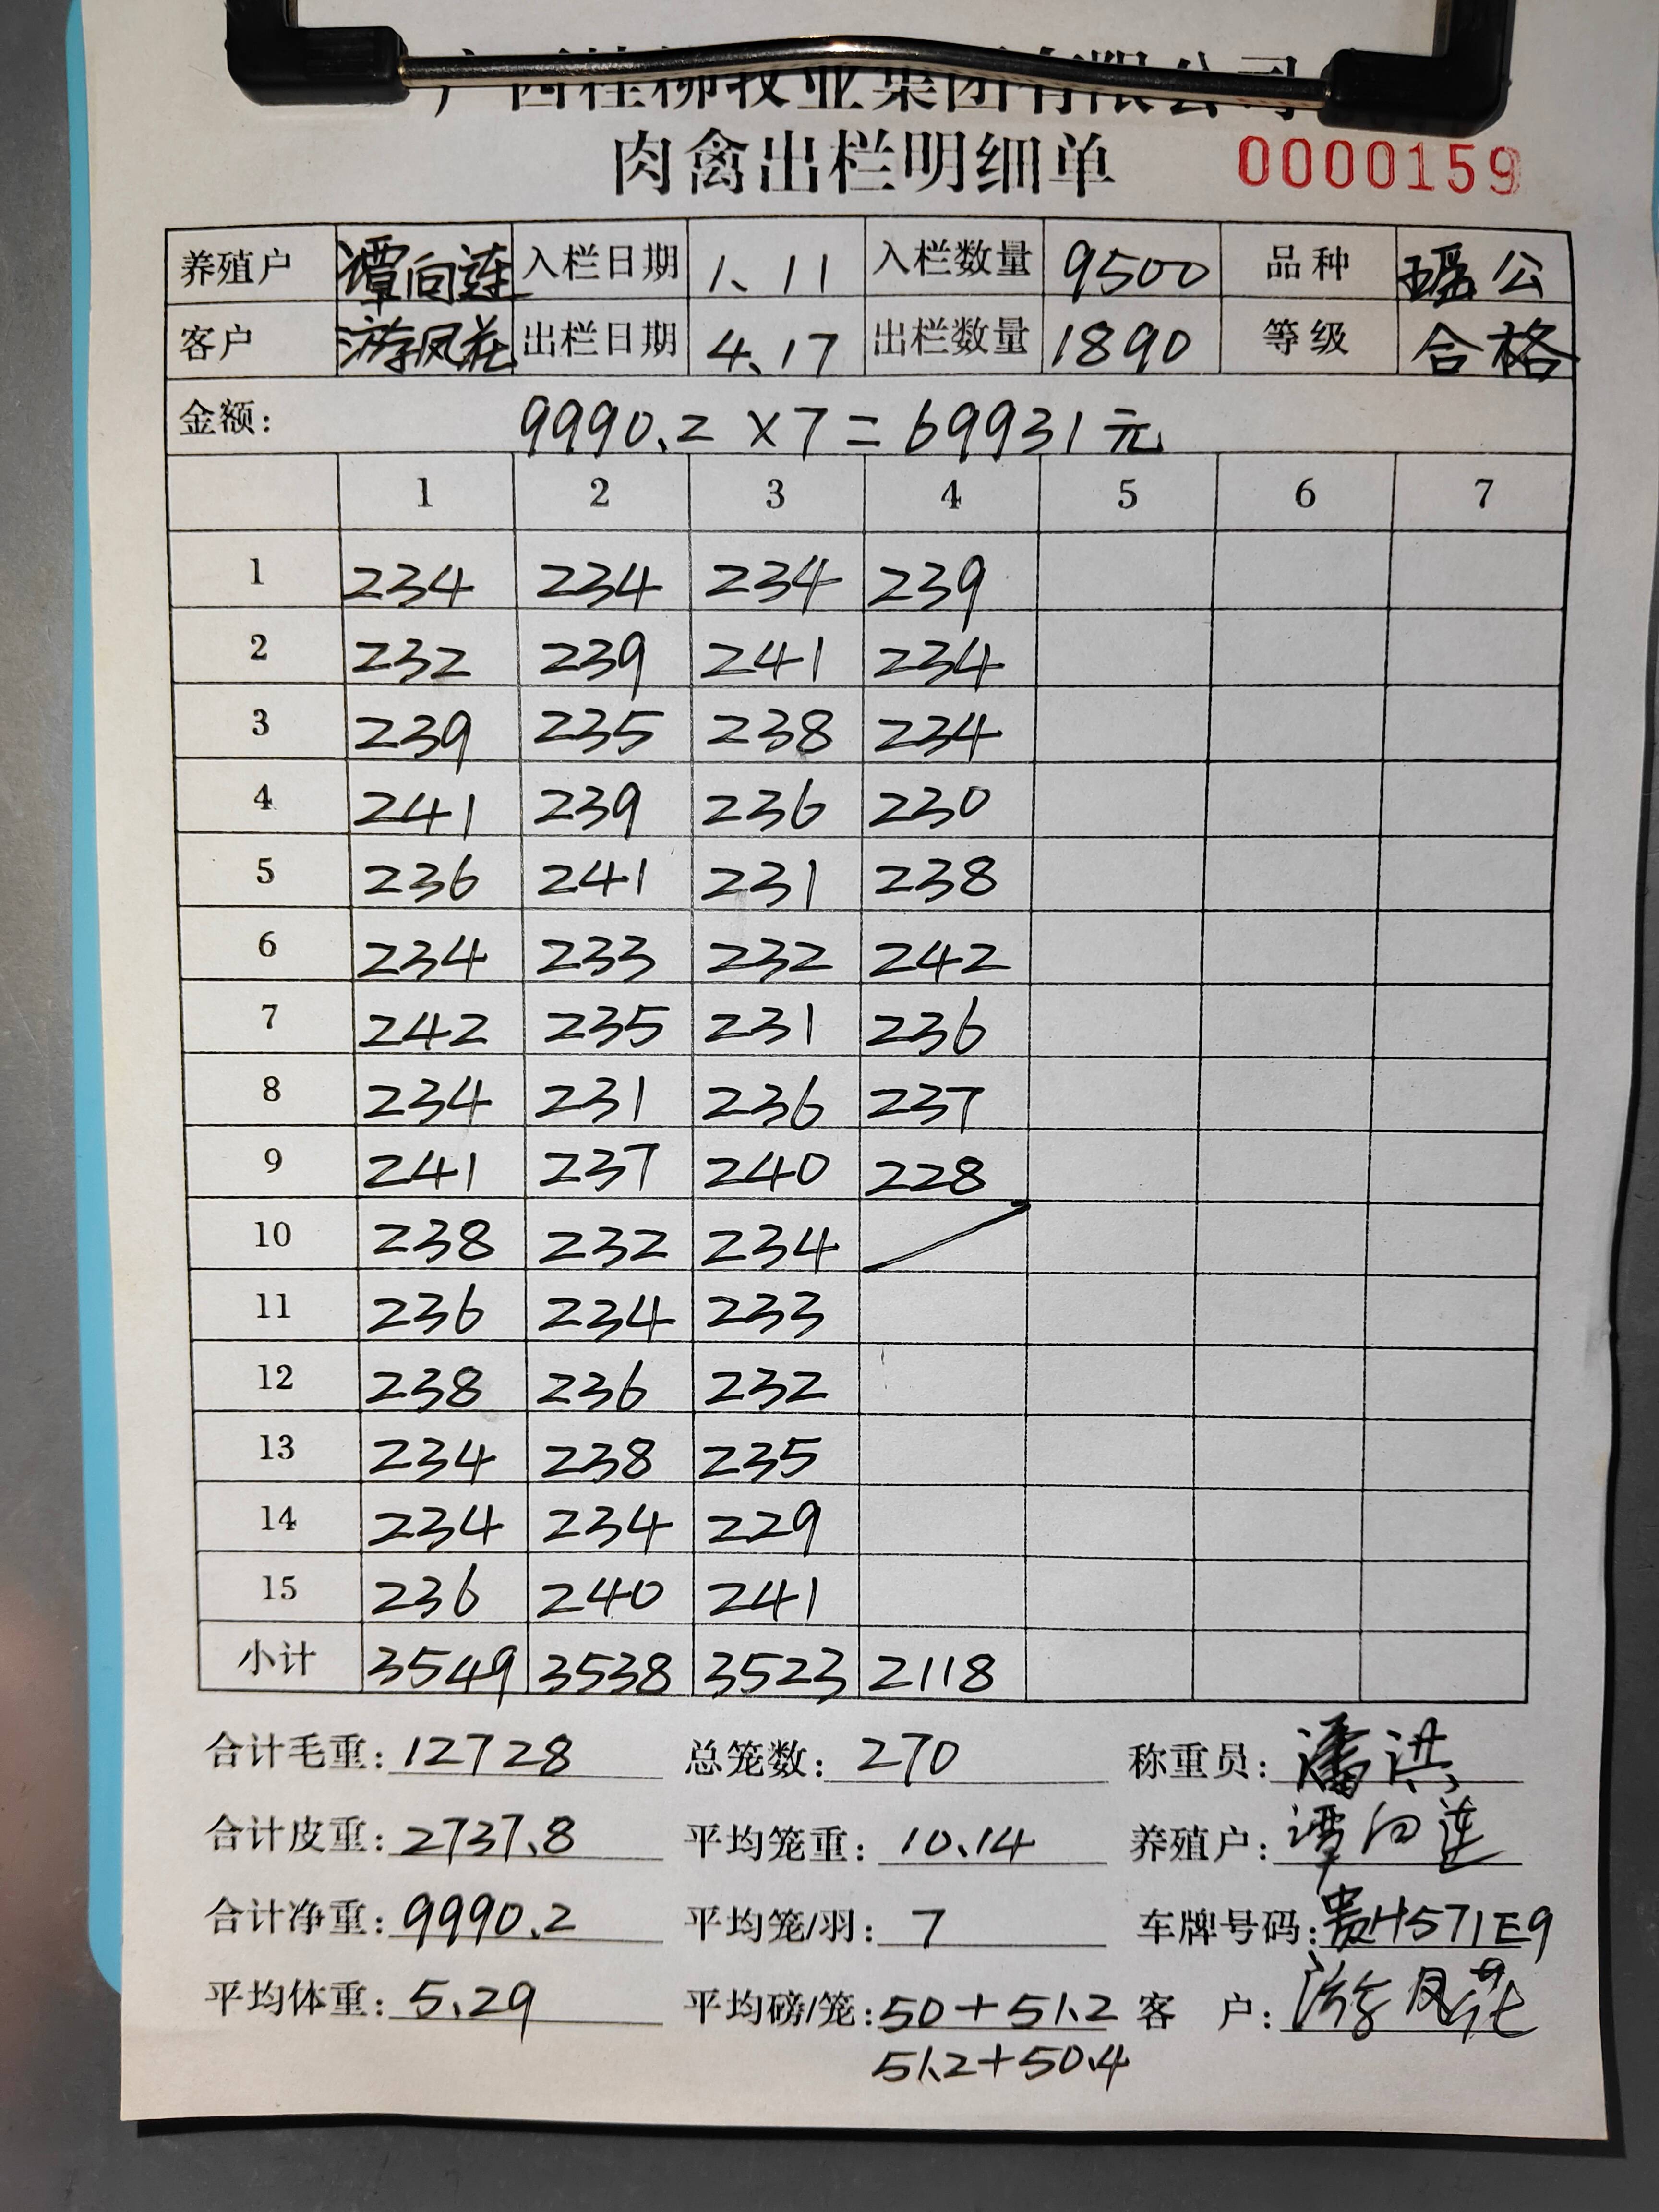 广西桂柳牧业集团有限公司
肉禽出栏明细单 0000159
养殖户 谭向连 入栏日期 1、11 入栏数量 9500 品种 瑶公
客户 游凤花 出栏日期 4、17 出栏数量 1890 等级 合格
金额: 9990.2 ×7=69931元
1 2 3 4 5 6 7
1 234 234 234 239
2 232 239 241 234
3 239 235 238 234
4 241 239 236 230
5 236 241 231 238
6 234 233 232 242
7 242 235 231 236
8 234 231 236 237
9 241 237 240 228
10 238 232 234
11 236 234 233
12 238 236 232
13 234 238 235
14 234 234 229
15 236 240 241
小计 3549 3538 3523 2118
合计毛重: 12728 总笼数: 270 称重员: 潘洪
合计皮重: 2737.8 平均笼重: 10.14 养殖户: 谭向连
合计净重: 9990.2 平均笼/羽: 7 车牌号码: 贵H571E9
平均体重: 5.29 平均磅/笼: 50+51.2 客 户: 游凤花
51.2+50.4